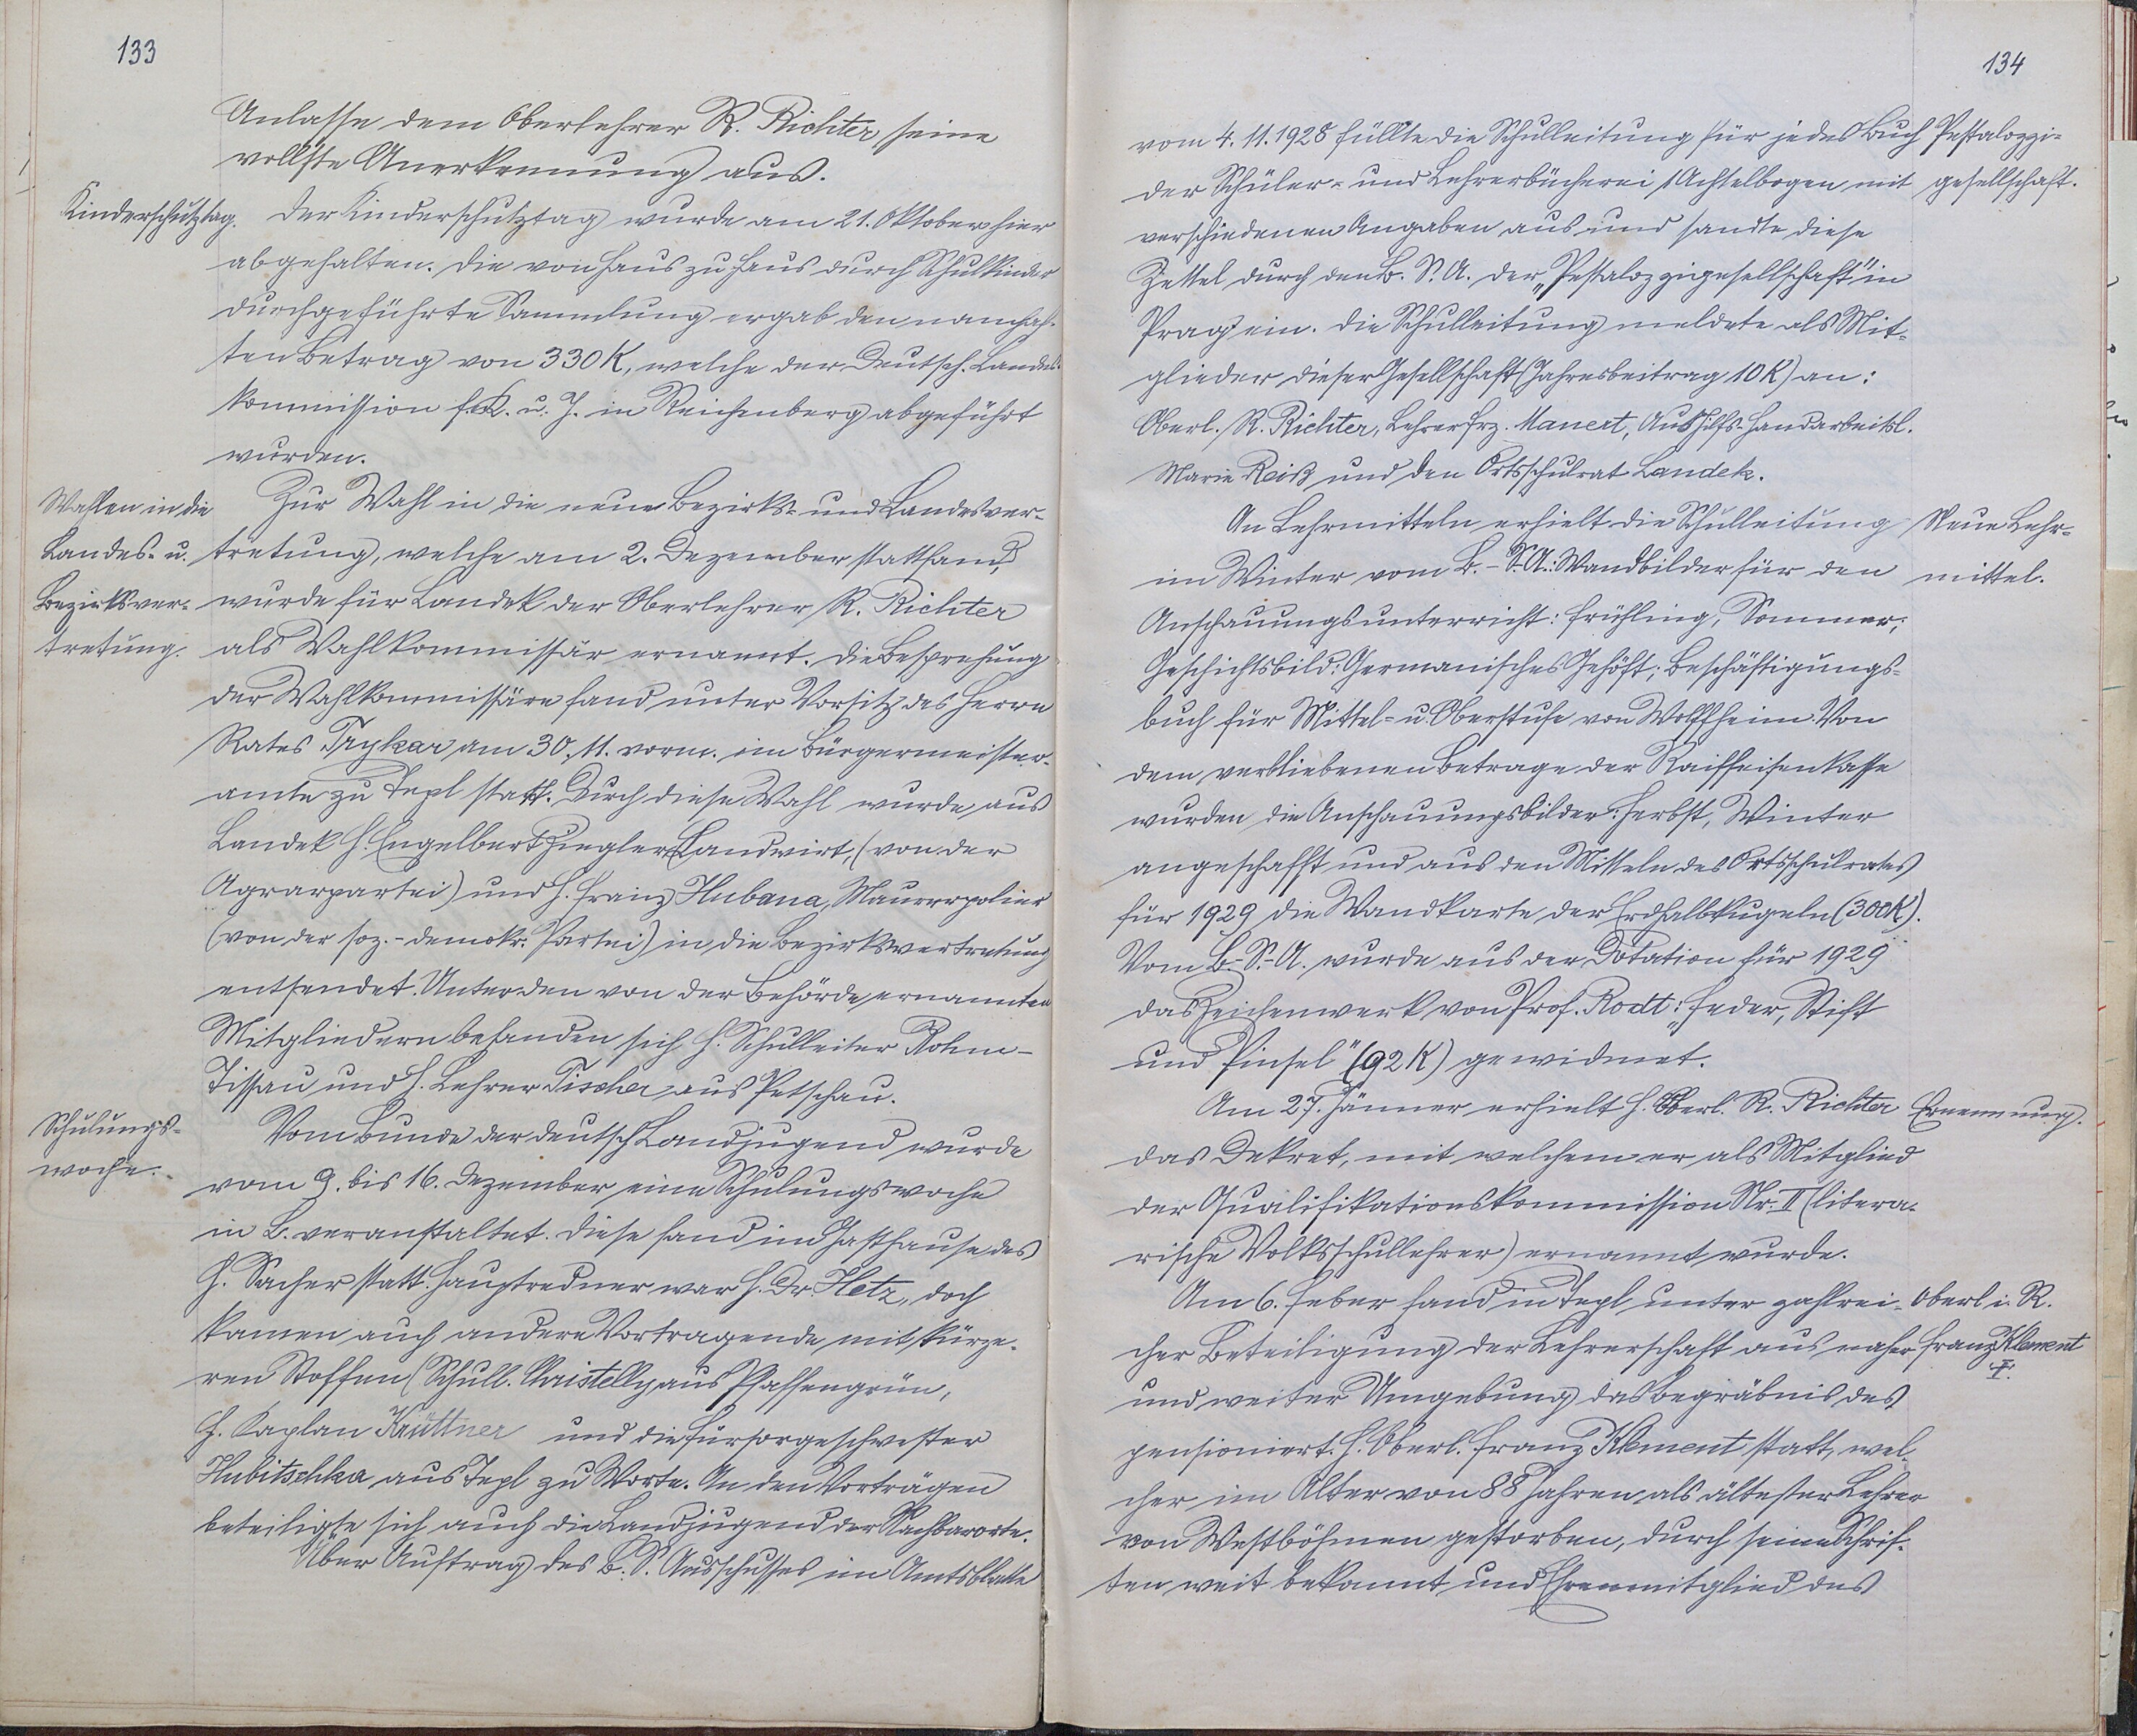 133
Anlasse dem Oberlehrer R. Richter seine
vollste Anerkennung aus.
Kinderschutztag.
Der Kinderschutztag wurde am 21. Oktober hier
abgehalten. Die von Haus zu Haus durch Schulkinder
durchgeführte Sammlung ergab den namhaf-
ten Betrag von 330 K, welche der Deutsch. Landes-
kommission f. K. u. J. in Reichenberg abgeführt
wurden.
Wahlen in die
Landes- u.
Bezirksver-
tretung.
Zur Wahl in die neue Bezirks- und Landesver-
tretung, welche am 2. Dezember stattfand,
wurde für Landek der Oberlehrer R. Richter
als Wahlkommissär ernannt. Die Besprechung
der Wahlkommissäre fand unter Vorsitz des Herrn
Rates Trykar am 30. 11. vorm. im Bürgermeister-
amte zu Tepl statt. Durch diese Wahl wurde aus
Landek H. Engelbert Ziegler, Landwirt, (von der
Agrarpartei) und H. Franz Hubana, Maurerpolier
(von der soz.-demokr. Partei) in die Bezirksvertretung
entsendet. Unter den von der Behörde ernannten
Mitgliedern befanden sich H. Schulleiter Rohm-
Tissau und H. Lehrer Tischer aus Petschau.
Schulungs-
woche.
Vom Bunde der deutsch. Landjugend wurde
vom 9. bis 16. Dezember eine Schulungswoche
in L. veranstaltet. Diese fand im Gasthause des
H. Sacher statt. Hauptredner war H. Dr. Hetz, doch
kamen auch andere Vortragende mit kürze-
ren Stoffen (Schull. Christelly aus Pfaffengrün,
H. Kaplan Krüttner und die Fürsorgeschwester
Hubitschka aus Tepl zu Worte. An den Vorträgen
beteiligte sich auch die Landjugend der Nachbarorte.
Über Auftrag des B. S. Ausschusses im Amtsblatte
134
vom 4. 11. 1928 füllte die Schulleitung für jedes Buch
der Schüler- und Lehrerbücherei 1 Achtelbogen mit
verschiedenen Angaben aus und sandte diese
Zettel durch den B. S. A. der „Pestalozzigesellschaft" in
Prag ein. Die Schulleitung meldete als Mit-
glieder dieser Gesellschaft (Jahresbeitrag 10 K) an:
Oberl. R. Richter, Lehrer Frz. Manert, Aushilfs-Handarbeitsl.
Marie Reiß und den Ortsschulrat Landek.
Pestalozzi-
gesellschaft.
An Lehrmitteln erhielt die Schulleitung
im Winter vom B.-S.A.: Wandbilder für den
Anschauungsunterricht: Frühling, Sommer;
Geschichtsbild: Germanisches Gehöft; Beschäftigungs-
buch für Mittel- u. Oberstufe von Wolffheim. Von
dem verbliebenen Betrage der Raiffeisenkasse
wurden die Anschauungsbilder: Herbst, Winter
angeschafft und aus den Mitteln des Ortsschulrates
für 1929 die Wandkarte der Erdhalbkugeln (300 K).
Vom B.-S.-A. wurde aus der Dotation für 1929
das Zeichenwerk von Prof. Rodt: „Feder, Stift
und Pinsel" (92 K) gewidmet.
Neue Lehr-
mittel.
Am 27. Jänner erhielt H. Oberl. R. Richter
das Dekret, mit welchem er als Mitglied
der Qualifikationskommission Nr. II (litera-
rische Volksschullehrer) ernannt wurde.
Ernennung.
Am 6. Feber fand in Tepl unter zahlrei-
cher Beteiligung der Lehrerschaft aus naher
und weiter Umgebung das Begräbnis des
pensioniert. H. Oberl. Franz Klement statt, wel-
cher im Alter von 88 Jahren als ältester Lehrer
von Westböhmen gestorben, durch seine Schrif-
ten weit bekannt und Ehrenmitglied des
Oberl. i. R.
Franz Klement
†.